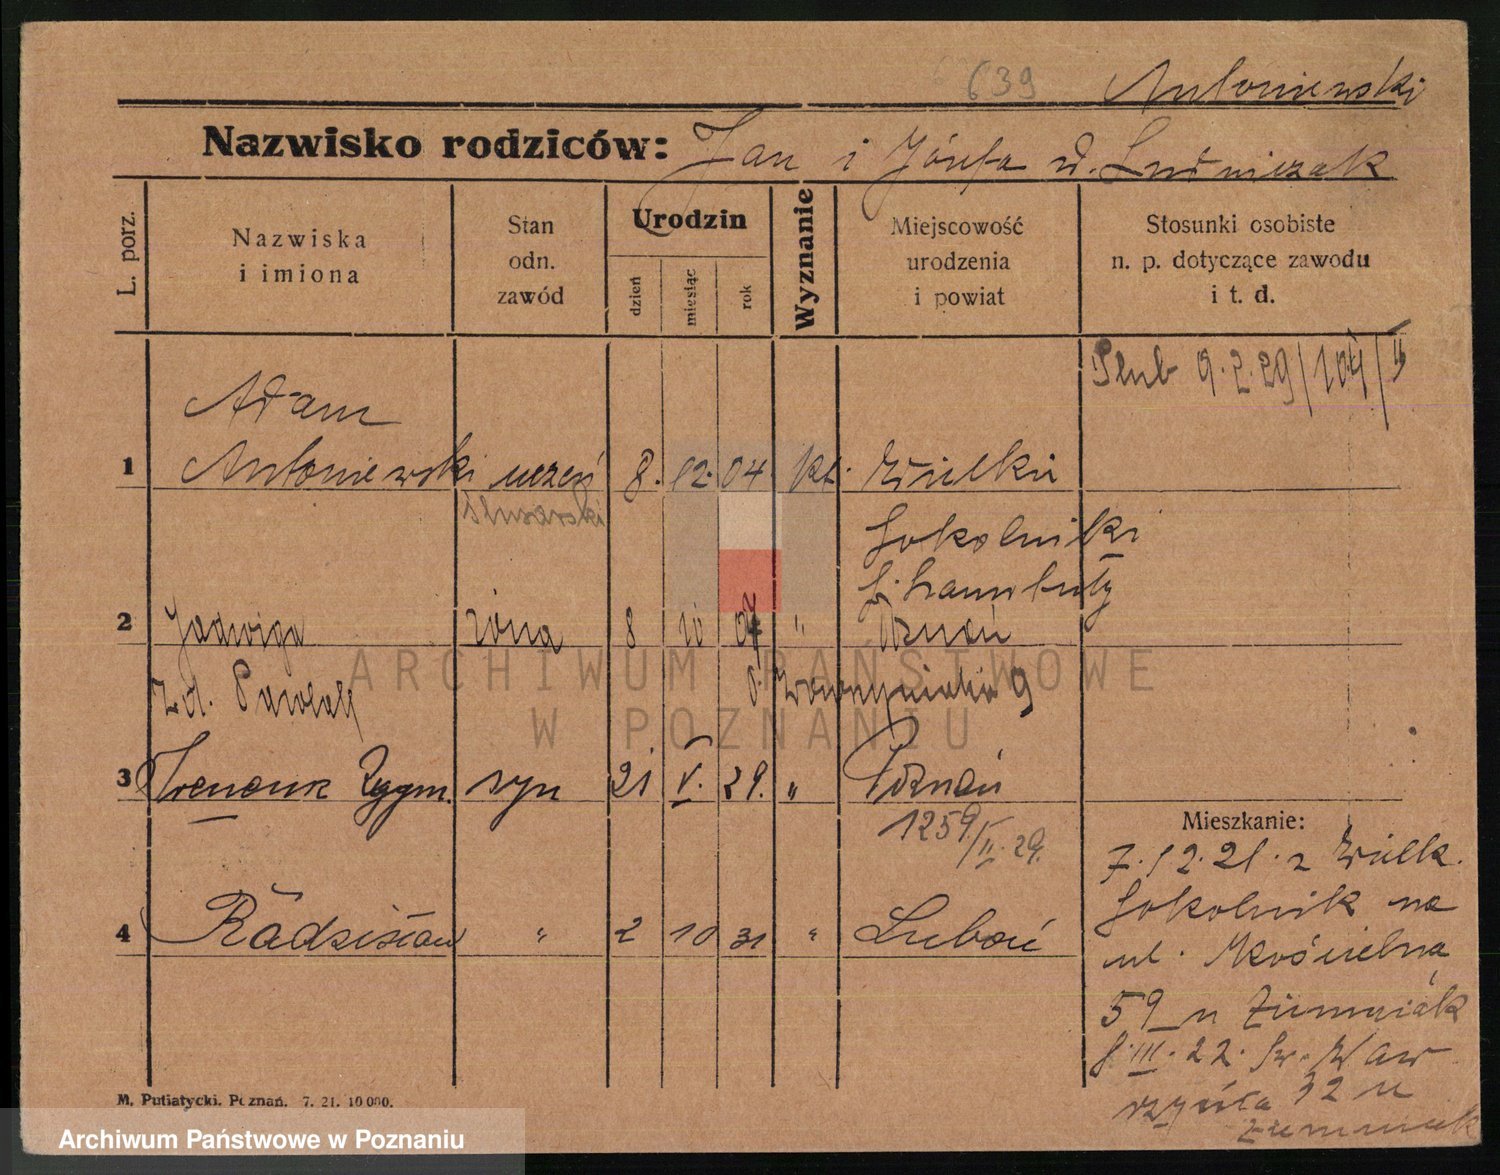 639
Antoniewski
Nazwisko rodziców: Jan i Józefa d. Ludwiczak
L. porz.
Nazwiska i imiona
Stan odn. zawód
Urodzin
dzień
miesiąc
rok
Wyznanie
Miejscowość urodzenia i powiat
Stosunki osobiste n. p. dotyczące zawodu i t. d.
Ślub 9.2.29/104/II
Adam
1 Antoniewski uczeń 8. 12. 04 kt. Wielkie
ślusarski
Sokolniki
p. Szamotuły
2 Jadwiga żona 8 10 07 " Poznań
zd. Pawlak
Wawrzyniaka 9
3 Ireneusz Zygm. syn 21 V. 29. " Poznań
1259/II. 29.
4 Radzisław " 2 10 31 " Luboń
Mieszkanie:
7.12.21. z Wielk.
Sokolnik na
ul. Kościelna
59 u Ziemniak
8.III.22. Św. Waw
rzyńca 32 u
Ziemniak
M. Putiatycki. Poznań. 7. 21. 10 000.
ARCHIWUM PAŃSTWOWE
W POZNANIU
Archiwum Państwowe w Poznaniu